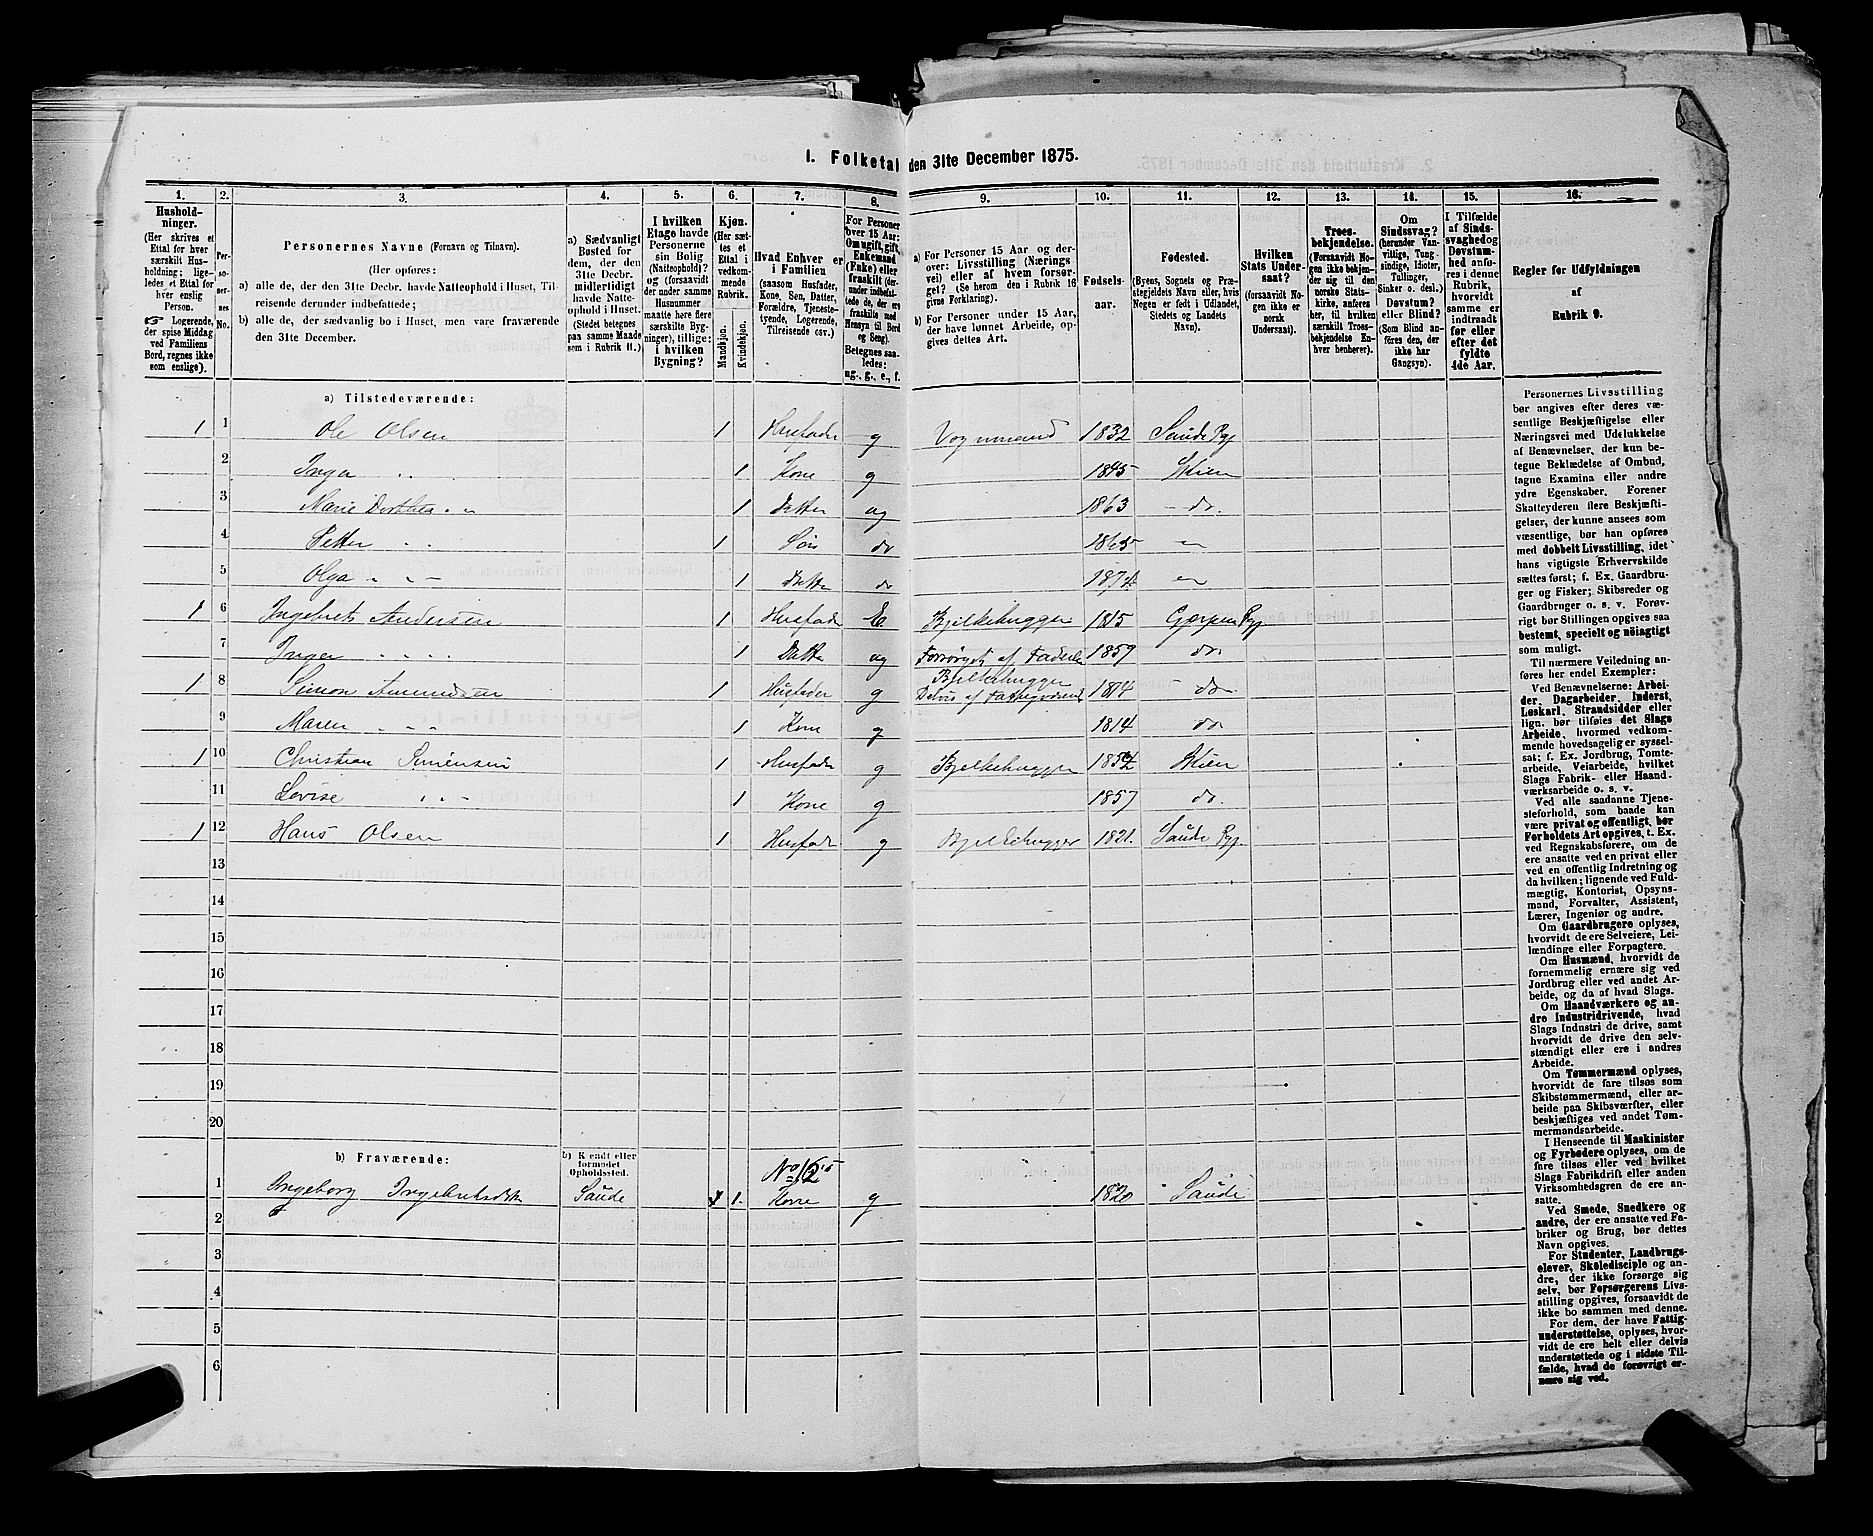 1. Folketal den 31te December 1875.
1. 2. 3. 4. 5. 6. 7. 8. 9. 10. 11. 12. 13. 14. 15. 16.
Hushold-
ninger.
(Her skrives et
Ettal for hver
særskilt Hus-
holdning; lige-
ledes et Ettal for
hver enslig
Person.
☞ Logerende,
der spise Middag
ved Familiens
Bord, regnes ikke
som enslige).
Per-
so-
ner-
nes
No.
Personernes Navne (Fornavn og Tilnavn).
(Her opføres:
a) alle de, der den 31te Decbr. havde Natteophold i Huset, Til-
reisende derunder indbefattede;
b) alle de, der sædvanlig bo i Huset, men vare fraværende
den 31te December.
a) Sædvanligt
Bosted for
dem, der den
31te Decbr.
midlertidigt
havde Natte-
ophold i Huset.
(Stedet betegnes
paa samme Maade
som i Rubrik 11.)
I hvilken
Etage havde
Personerne
sin Bolig
(Natteophold)?
og (forsaavidt
der under samme
Husnummer
maatte høre flere
særskilte Byg-
ninger), tillige:
i hvilken
Bygning?
Kjøn.
(Her sæt-
tes et
Ettal i
vedkom-
mende
Rubrik.
Mandkjøn.
Kvindekjøn.
Hvad Enhver er
i Familien
(saasom Husfader,
Kone, Søn, Datter,
Forældre, Tjeneste-
tyende, Logerende,
Tilreisende osv.)
For Personer
over 15 Aar:
Om ugift, gift,
Enkemand
(Enke) eller
fraskilt (der-
under indbefat-
tede de, der ere
fraskilte med
Hensyn til Bord
og Seng).
Betegnes saa-
ledes:
ug., g., e., f.
a) For Personer 15 Aar og der-
over: Livsstilling (Nærings-
vei) eller af hvem forsør-
get? (Se herom den i Rubrik 16
givne Forklaring).
b) For Personer under 15 Aar,
der have lønnet Arbeide, op-
gives dettes Art.
Fødsels-
aar.
Fødested.
(Byens, Sognets og Præ-
stegjeldets Navn eller, hvis
Nogen er født i Udlandet,
Stedets og Landets
Navn).
Hvilken
Stats Under-
saat?
(forsaavidt No-
gen ikke er
norsk
Undersaat).
Troes-
bekjendelse.
(Forsaavidt No-
gen ikke bekjen-
der sig til den
norske Stats-
kirke, anføres
her, til hvilken
særskilt Troes-
bekjendelse En-
hver henhører).
Om
Sindssvag?
(herunder Van-
vittige, Tung-
sindige, Idioter,
Tullinger,
Sinker o. desl.)
Døvstum?
eller Blind?
(Som Blind an-
føres den, der
ikke har
Gangsyn).
I Tilfælde
af Sinds-
svaghed og
Døvstum-
hed anfø-
res i denne
Rubrik,
hvorvidt
samme er
indtraadt
før eller
efter det
fyldte
4de Aar.
Regler for Udfyldningen
af
Rubrik 9.
a) Tilstedeværende:
1 1 Ole Olsen 1 Husfader g Vognmand 1832 Saude Pgj
2 Inga " " 1 Kone g 1845 Skien
3 Marie Dorthea " " 1 Datter ug 1863 - do.
4 Petter " " 1 Søn do 1865 "
5 Olga " " 1 Datter do "
1 6 Ingebret Andersen 1 Husfader E. Bjelkehugger 1815 Gjerpen Pgj
7 Inger " " 1 Datter ug Forsørget af Faderen 1859 do
1 8 Simon Amundsen 1 Husfader g Bjelkehugger
Delvis af Fattigvæsenet 1814 - do -
9 Maren " " 1 Kone g 1814 do
1 10 Christian Simensen 1 Husfader g Bjelkehugger Skien
11 Lovise " " 1 Kone g 1857 do.
1 12 Hans Olsen 1 Husfader g Bjelkehugger 1821. Saude Pgj.
13
14
15
16
17
18
19
20
b) Fraværende:
b) Kjendt eller
formodet
Opholdssted.
No 12
1 Ingeborg Ingebretsdtr Saude 1. Kone g 1820 Saude
2
3
4
5
6
Personernes Livsstilling
bør angives efter deres væ-
sentlige Beskjæftigelse eller
Næringsvei med Udelukkelse
af Benævnelser, der kun be-
tegne Beklædelse af Ombud,
tagne Examina eller andre
ydre Egenskaber. Forener
Skatteyderen flere Beskjæfti-
gelser, der kunne ansees som
væsentlige, bør han opføres
med dobbelt Livsstilling, idet
hans vigtigste Erhvervskilde
sættes først; f. Ex. Gaardbru-
ger og Fisker; Skibsreder og
Gaardbruger o. s. v. Forøv-
rigt bør Stillingen opgives saa
bestemt, specielt og nøiagtigt
som muligt.
Til nærmere Veiledning an-
føres her endel Exempler:
Ved Benævnelserne: Arbei-
der, Dagarbeider, Inderst,
Løskarl, Strandsidder eller
lign. bør tilføies det Slags
Arbeide, hvormed vedkom-
mende hovedsagelig er syssel-
sat; f. Ex. Jordbrug, Tomte-
arbeide, Veiarbeide, hvilket
Slags Fabrik- eller Haand-
værksarbeide o. s. v.
Ved alle saadanne Tjene-
steforhold, som baade kan
være privat og offentligt, bør
Forholdets Art opgives, t. Ex.
ved Regnskabsførere, om de
ere ansatte ved en privat eller
ved en offentlig Indretning og
da hvilken; lignende ved Fuld-
mægtig, Kontorist, Opsyns-
mand, Forvalter, Assistent,
Lærer, Ingeniør og andre.
Om Gaardbrugere oplyses,
hvorvidt de ere Selveiere, Lei-
lændinge eller Forpagtere.
Om Husmænd, hvorvidt de
fornemmelig ernære sig ved
Jordbrug eller ved andet Ar-
beide, og da af hvad Slags.
Om Haandværkere og an-
dre Industridrivende, hvad
Slags Industri de drive, samt
hvorvidt de drive den selv-
stændigt eller ere i andres
Arbeide.
Om Tømmermænd oplyses,
hvorvidt de fare tilsøs som
Skibstømmermænd, eller ar-
beide paa Skibsværfter, eller
beskjæftiges ved andet Tøm-
mermandsarbeide.
I Henseende til Maskinister
og Fyrbødere oplyses, om de
fare tilsøs eller ved hvilket
Slags Fabrikdrift eller anden
Virksomhedsgren de ere an-
satte.
Ved Smede, Snedkere og
andre, der ere ansatte ved Fa-
briker og Brug, bør dettes
Navn opgives.
For Studenter, Landbrugs-
elever, Skoledisciple og an-
dre, der ikke forsørge sig
selv, bør Forsørgerens Livs-
stilling opgives, forsaavidt de
ikke bo sammen med denne.
For dem, der have Fattig-
understøttelse, oplyses, hvor-
vidt de ere helt eller delvis
understøttede og i sidste Til-
fælde, hvad de forøvrigt er-
nære sig ved.